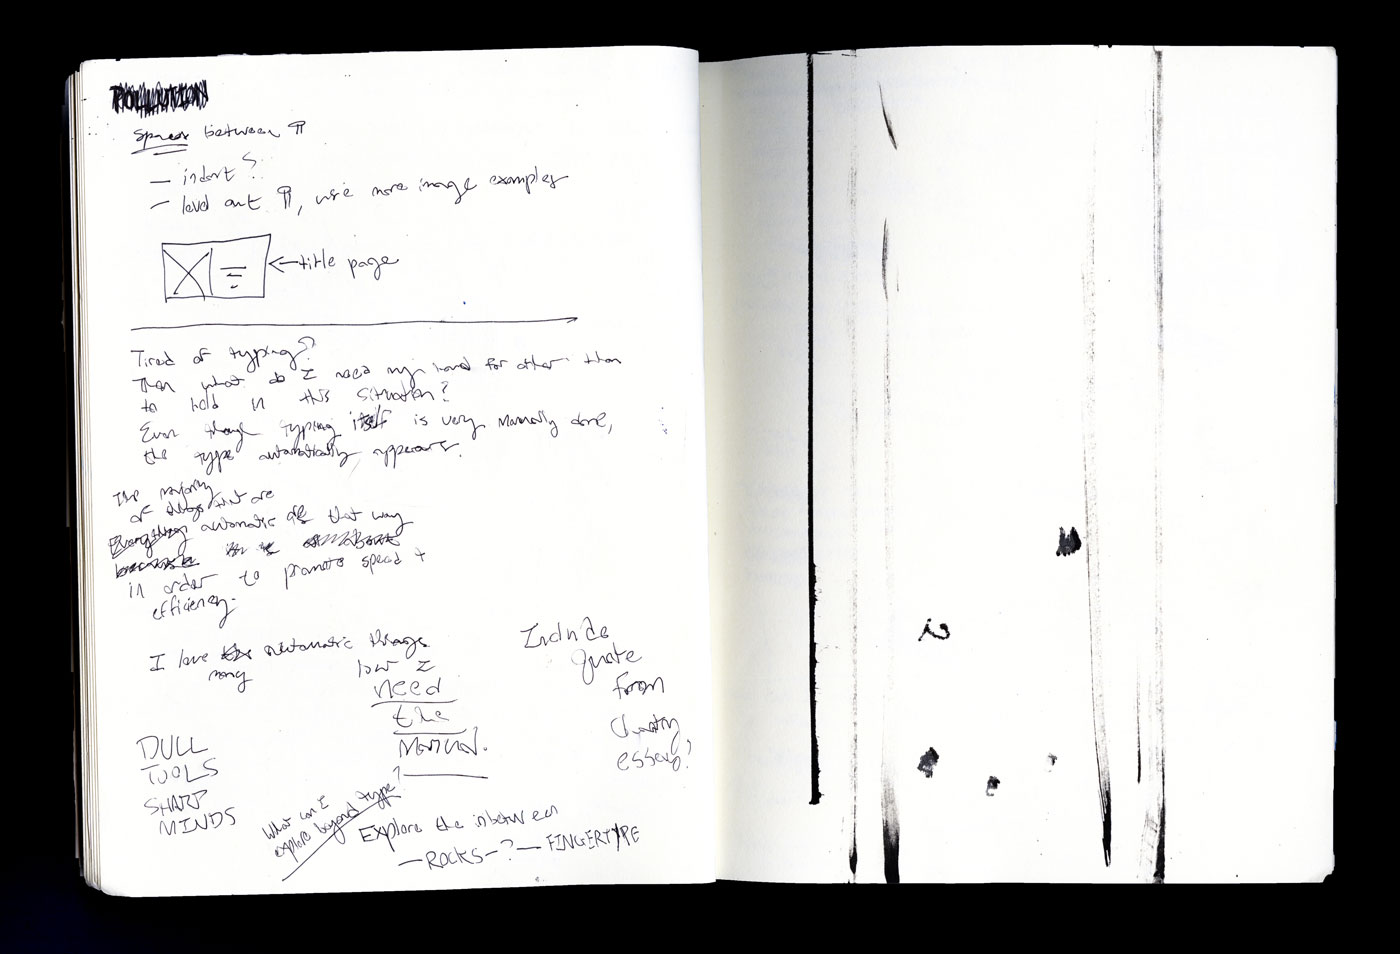 Spaces between ¶
— indent?
— level out ¶, use more image examples
←title page
Tired of typing?
Then what do I need my hand for other than
to hold in this situation?
Even though typing itself is very manually done,
the type automatically appears.
The majority
of things that are
Everything automatic are that way
because
in order to promote speed +
efficiency.
I love the automatic things
many
but I
need
the
manual.
Include
quote
from
essay?
DULL
TOOLS
SHARP
MINDS
What can I
explore beyond type?
Explore the inbetween
—ROCKS—?—FINGERTYPE